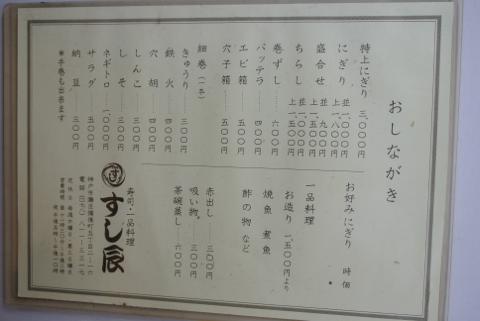 おしながき
特上にぎり 三、〇〇〇円
にぎり 並一、〇〇〇円
上一、八〇〇円
盛合せ 並 九〇〇円
上一、五〇〇円
ちらし 並一、〇〇〇円
上一、五〇〇円
巻ずし 六〇〇円
バッテラ 四〇〇円
エビ箱 五〇〇円
穴子箱 五〇〇円
細巻(一本)
きゅうり 三〇〇円
鉄火 四〇〇円
穴胡 四〇〇円
しんこ 三〇〇円
しそ 三〇〇円
ネギトロ 一、〇〇〇円
サラダ 五〇〇円
納豆 三〇〇円
※手巻も出来ます
お好みにぎり 時価
一品料理
お造り 一、五〇〇円より
焼魚 煮魚
酢の物 など
赤出し 三〇〇円
吸い物 三〇〇円
茶碗蒸し 六〇〇円
寿司・一品料理
すし辰